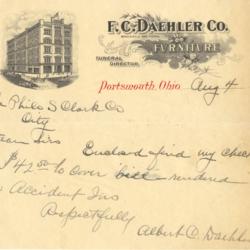 F. C. DAEHLER CO.
FURNITURE
FUNERAL
DIRECTOR.
Portsmouth, Ohio Aug 4
Philo S Clark Co
City
Sirs
Enclosed find my check
$42.00 to cover bill rendered
Accident Ins
Respectfully
Albert C. Daehler